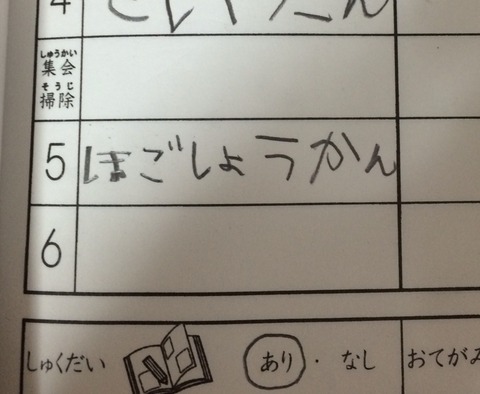 4
しゅうかい
集会
そうじ
掃除
5 ほごしょうかん
6
しゅくだい あり・なし おてがみ